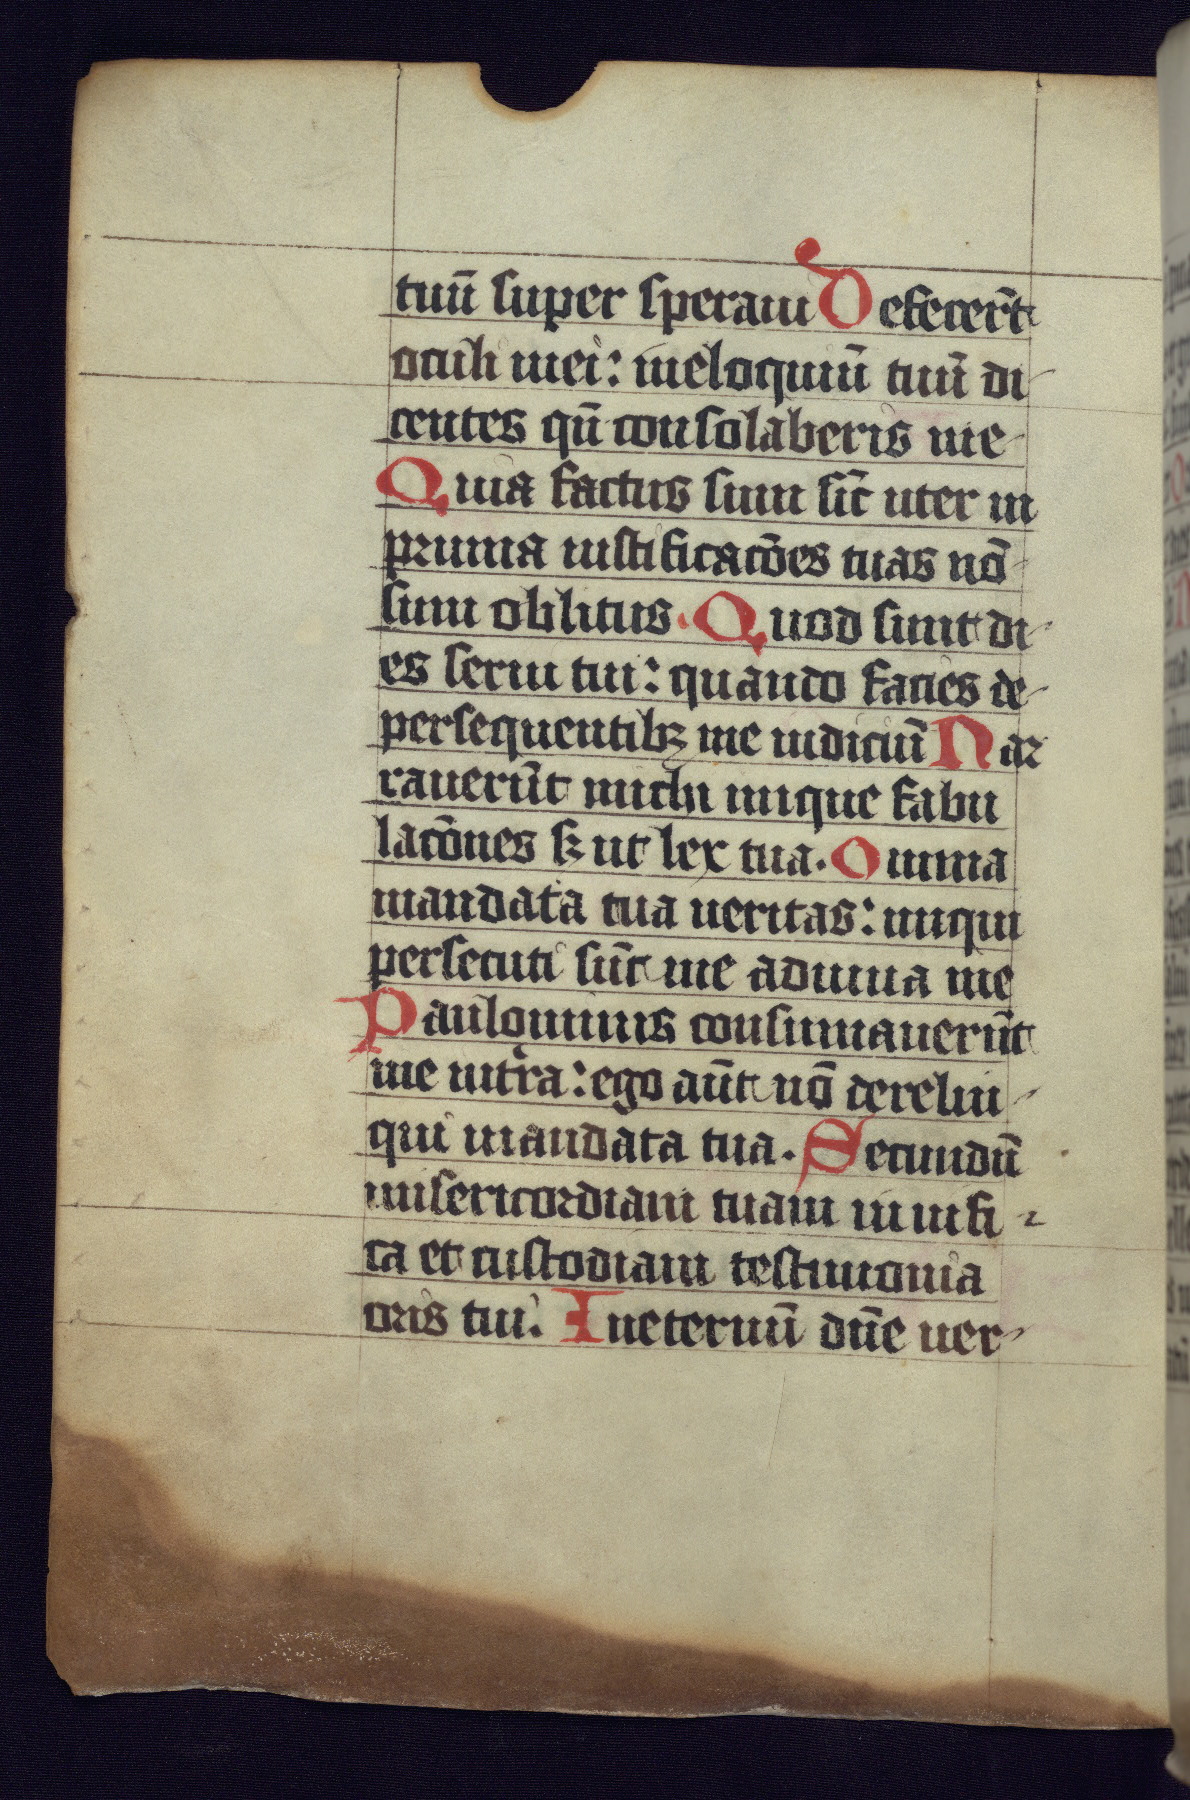 tuū super speraui Defecer̄t
oculi mei: ineloquiū tuū di
centes qn̄ consolaberis me
Quia factus sum sic̄ uter in
pruina iustificacōes tuas nō
sum oblitus. Quod sunt di
es serui tui: quando facies de
persequentibꝫ me iudiciū Nar
rauerūt michi inique fabu
lacōnes sꝫ ut lex tua. Omnia
mandata tua ueritas: iniqui
persecuti sūt me adiuua me
Paulominus consumauerūt
me intra: ego aūt nō dereliu
qui mandata tua. Secundū
misericordiam tuam uiuifi
ca et custodiam testimonia
oris tui. Ineternū dn̄e uer